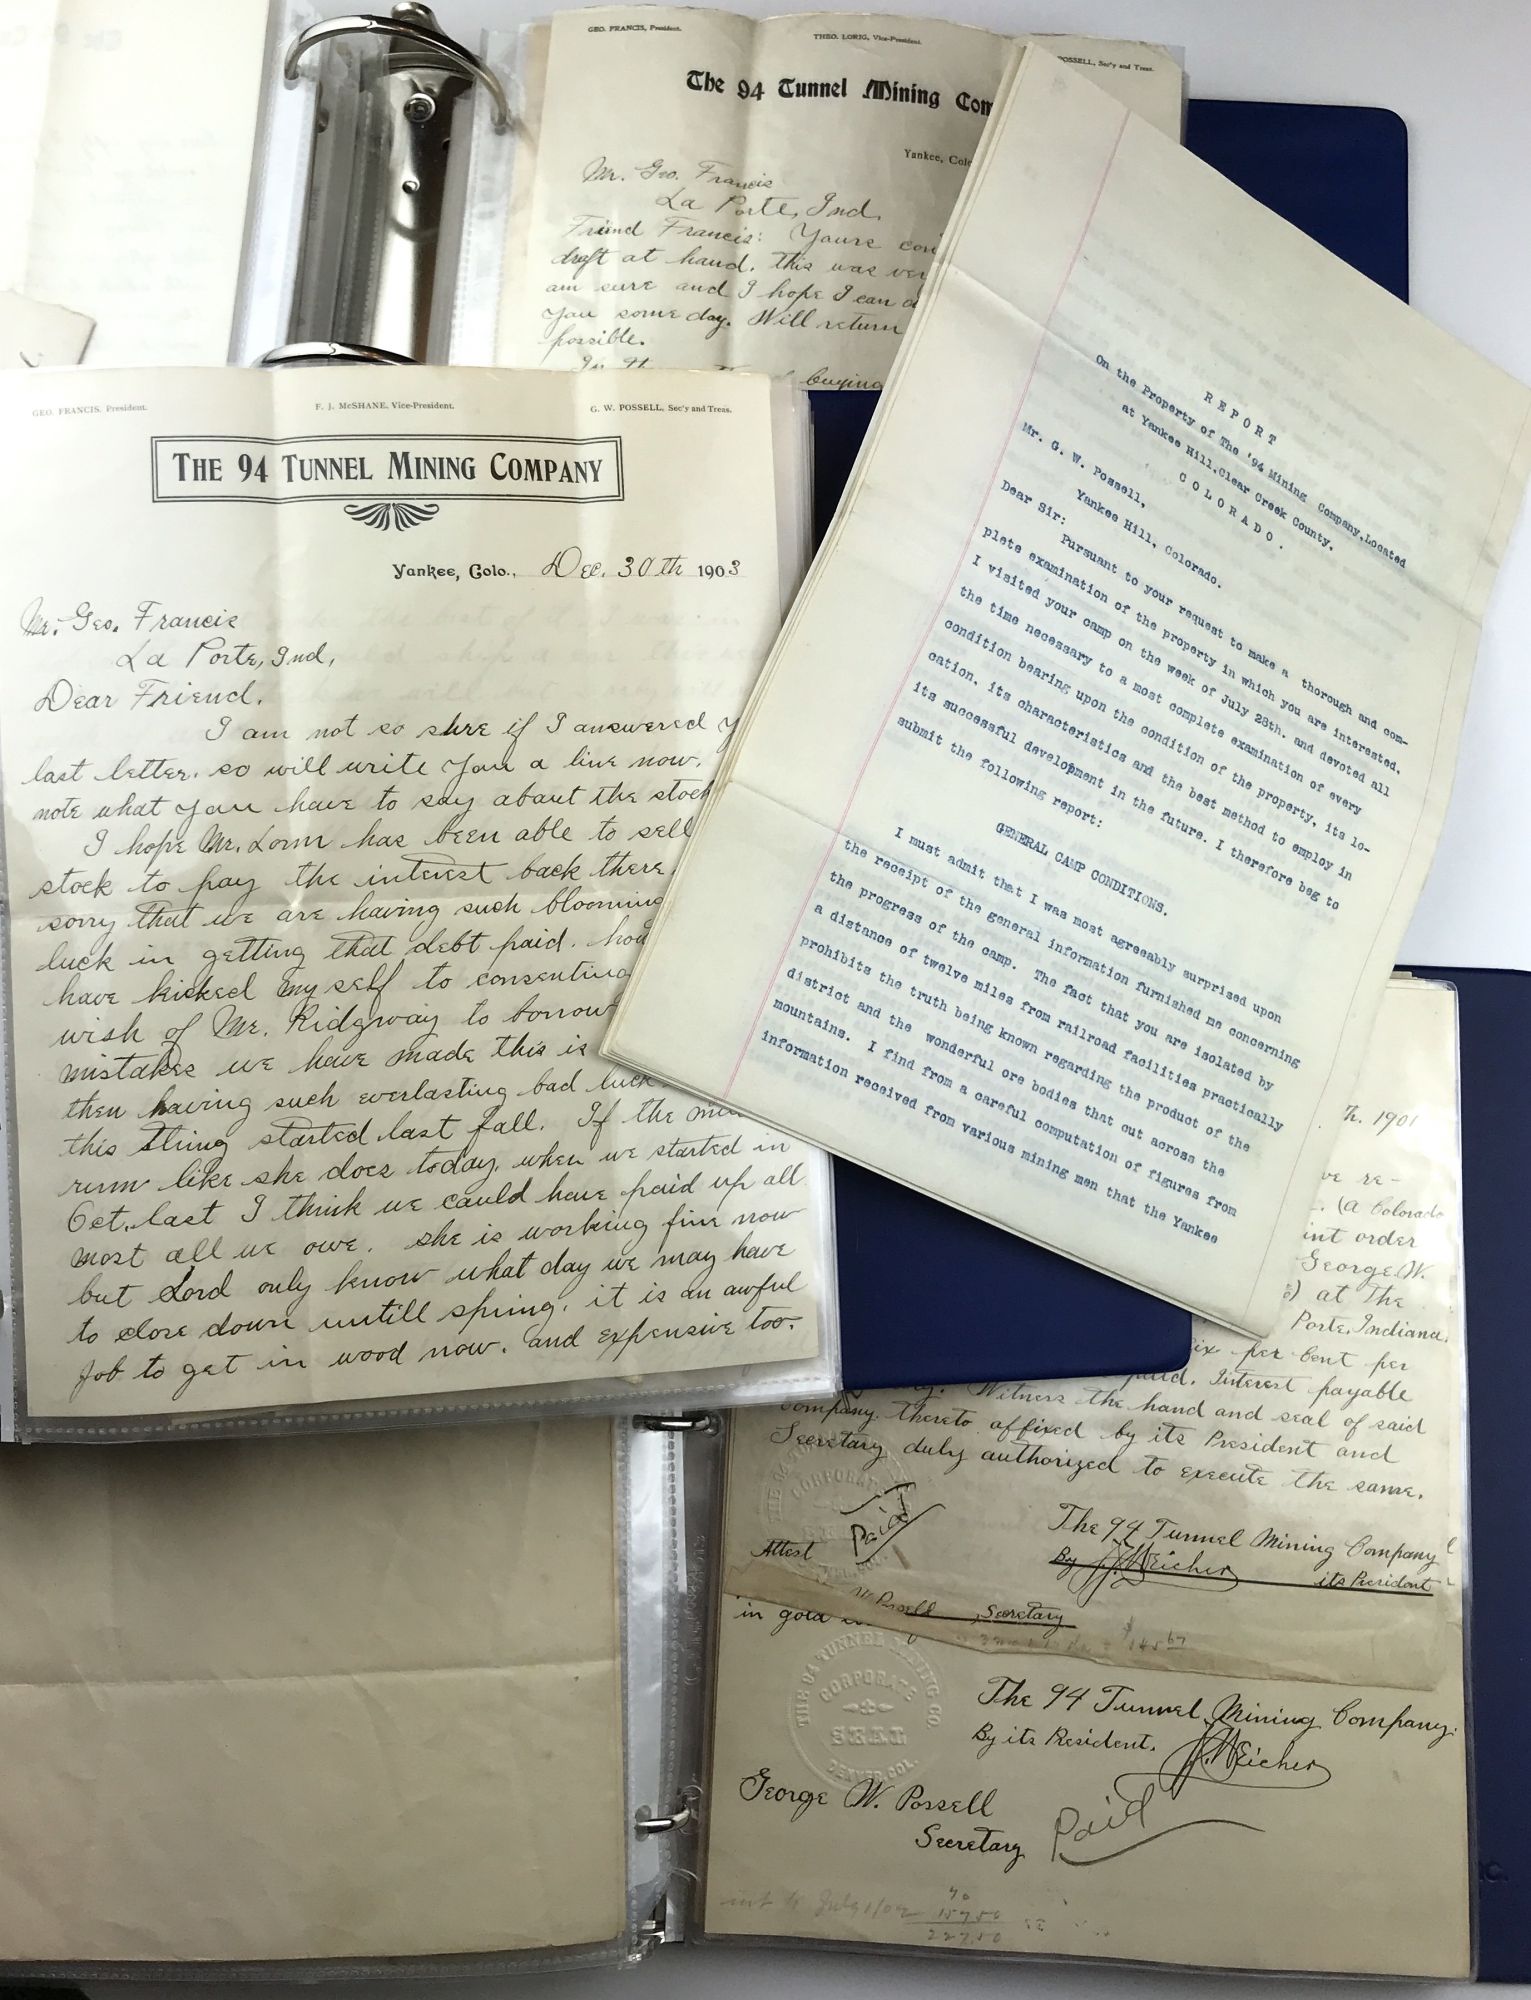 GEO. FRANCIS, President.
THEO. LORIG, Vice-President.
POSSELL, Sec'y and Treas.
The 94 Tunnel Mining Com
Yankee, Colo
Mr. Geo. Francis
La Porte, Ind.
Friend Francis: Yours
draft at hand. this was
am sure and I hope I can
you some day. Will return
possible.
buying
GEO. FRANCIS, President.
F. J. McSHANE, Vice-President.
G. W. POSSELL, Sec'y and Treas.
THE 94 TUNNEL MINING COMPANY
Yankee, Colo., Dec. 30th 1903
Mr. Geo. Francis
La Porte, Ind,
Dear Friend.
I am not so shre if I answered
last letter. so will write you a line now.
note what you have to say about the stock
I hope Mr. has been able to sell
stock to pay the interest back there.
sorry that we are having such blooming
luck in getting that debt paid.
have kicked my self to consenting
wish of Mr. Ridgway to borrow
mistakes we have made this is
then having such everlasting bad luck
this thing started last fall. If the
runn like she does today. when we started in
Oct. last I think we could have paid up all
most all we owe. she is working fine now
but Lord only know what day we may have
to close down untill spring. it is an awful
job to get in wood now. and expensive too.
REPORT
On the Property of The '94 Mining Company, Located
at Yankee Hill, Clear Creek County,
COLORADO.
Mr. G. W. Possell,
Yankee Hill, Colorado.
Dear Sir:
Pursuant to your request to make a thorough and com-
plete examination of the property in which you are interested,
I visited your camp on the week of July 28th. and devoted all
the time necessary to a most complete examination of every
condition bearing upon the condition of the property, its lo-
cation, its characteristics and the best method to employ in
its successful development in the future. I therefore beg to
submit the following report:
GENERAL CAMP CONDITIONS.
I must admit that I was most agreeably surprised upon
the receipt of the general information furnished me concerning
the progress of the camp. The fact that you are isolated by
a distance of twelve miles from railroad facilities practically
prohibits the truth being known regarding the product of the
district and the wonderful ore bodies that cut across the
mountains. I find from a careful computation of figures from
information received from various mining men that the Yankee
th. 1901
ve re-
(a Colorado
int order
George W.
at The
Porte, Indiana.
six per cent per
Interest payable
Witness the hand and seal of said
Company. thereto affixed by its President and
Secretary duly authorized to execute the same.
The 94 Tunnel Mining Company
By J. Weicher
its President
Attest
Paid
W. Possell Secretary
in gold
THE 94 TUNNEL MINING CO.
CORPORATE
SEAL
DENVER, COL.
The 94 Tunnel Mining Company.
By its President. J. Weicher
George W. Possell
Secretary
Paid
int to July 1/02
70
157.50
227.50